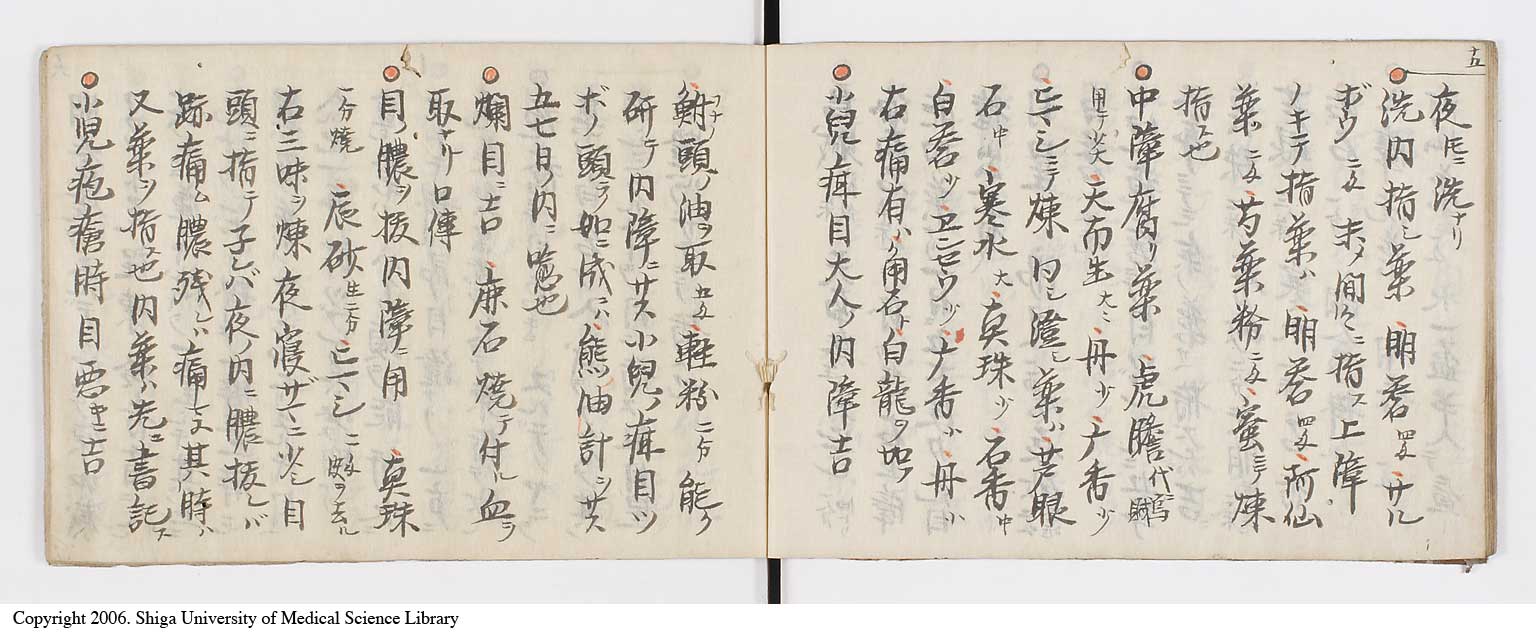 十五
夜ニ洗ナリ
洗内指シ薬 明礬四匁 サル
ボウ二匁 末〆間ニ指ス上障
ノキテ指薬ハ 明礬四匁 阿仙
薬二匁 芍薬粉二匁 蜜ニテ煉
指ス也
中障腐リ薬 虎膽代
用テ 大 天南生大 丹少 丁香少
ニテ煉 シ薬ハ芦眼
石中 寒水大 真珠少 石香中
白礬少 少 丁香小 丹小
右痛有ハ 用 白龍ヲ加フ
小兒疳目大人ノ内障吉
鮒ノ頭ノ油ヲ取五匁 軽粉二分 能ク
研リテ内障ニサス小兒ノ疳目ツ
ボノ頭 如ニ成ニハ熊油計シサス
五七日ノ内ニ 也
爛目ニ吉 麻石 焼テ付ル血ヲ
取ナリ口傳
目ノ膿ヲ抜内障ニ用 真珠
一分焼 辰砂生二分
右三味ヲ煉夜寝ザマニ少シ目
頭ニ指テ子レバ夜ノ内ニ膿抜レバ
跡痛ム膿残レバ痛 其時ハ
又薬ヲ指ス也内薬ハ先ニ書記ス
小児疱瘡時目悪キニ吉
Copyright 2006. Shiga University of Medical Science Library